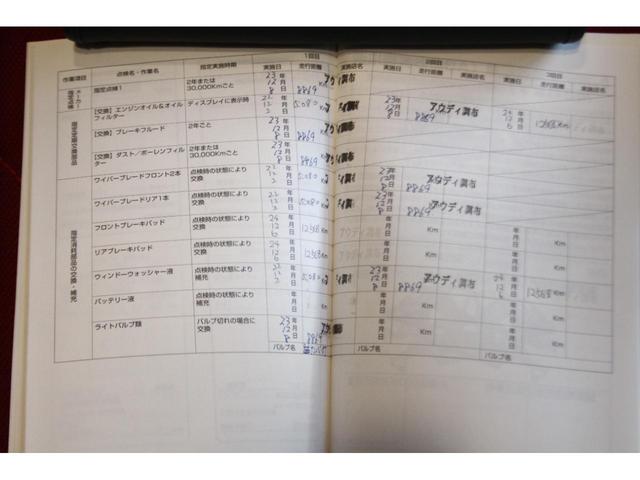 1回目
2回目
3回目
作業項目 点検名・作業名 指定実施時期 実施日 走行距離 実施店名 実施日 走行距離 実施店名 実施日 走行距離 実施店名
メーカー指定点検
指定点検1 2年または30,000Kmごと 23年12月8日 8869
指定定期交換部品
[交換] エンジンオイル&オイルフィルター ディスプレイに表示時 22年12月2日 5080 23年12月8日 8869 アウディ調布 24年12月6日 12568Km
[交換] ブレーキフルード 2年ごと 23年12月8日 8869
[交換] ダスト/ポーレンフィルター 2年または30,000Kmごと 23年12月8日 8869
指定消耗部品の交換・補充
ワイパーブレードフロント2本 点検時の状態により交換 22年12月2日 5080 23年12月8日 8869 アウディ調布
ワイパーブレードリア1本 点検時の状態により交換 22年12月2日 5080 23年12月8日 8869 アウディ調布
フロントブレーキパッド 点検時の状態により交換 24年12月6日 12568Km 年月日 Km 年月日 Km
リアブレーキパッド 点検時の状態により交換 24年12月6日 12568Km 年月日 Km 年月日 Km
ウィンドーウォッシャー液 点検時の状態により補充 22年12月2日 5080 23年12月8日 8869 アウディ調布 24年12月6日 12568Km
バッテリー液 点検時の状態により補充 年月日 Km 年月日 Km 年月日 Km
ライトバルブ類 バルブ切れの場合に交換 23年12月8日 8869 年月日 Km 年月日 Km
バルブ名 バルブ名 バルブ名